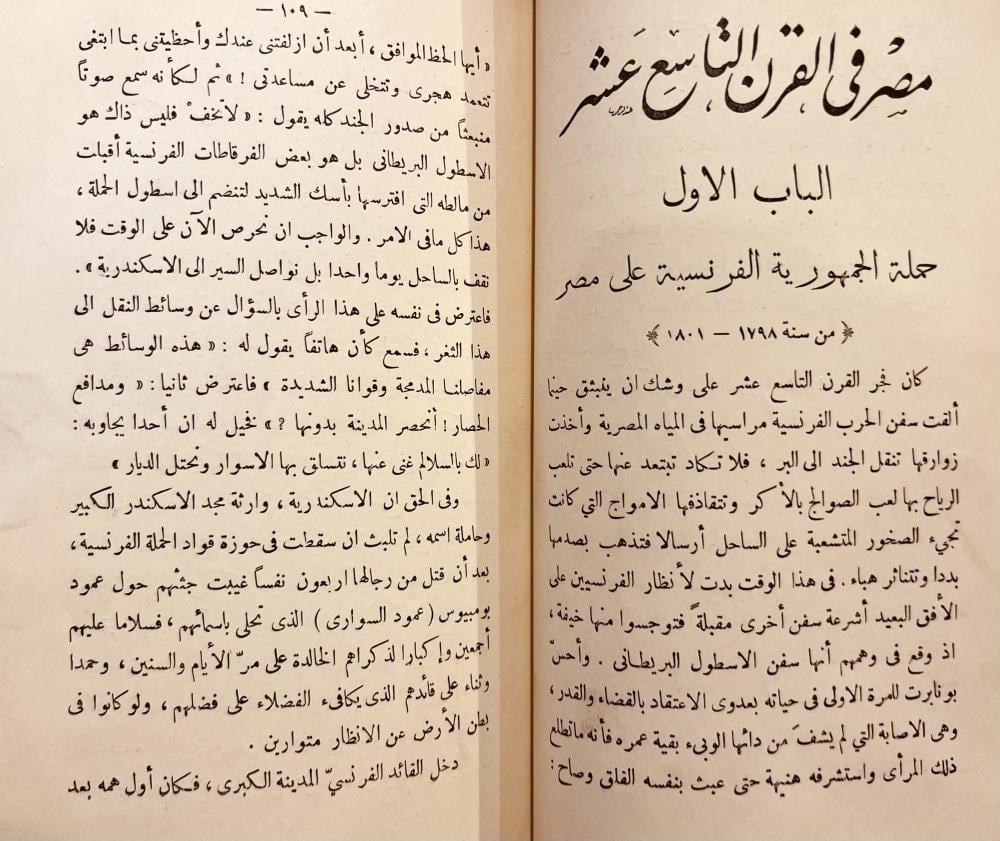 مصر فى القرن التاسع عشر
الباب الاول
حملة الجمهورية الفرنسية على مصر
﴿ من سنة ١٧٩٨ — ١٨٠١ ﴾
كان فجر القرن التاسع عشر على وشك ان ينبثق حينما
ألقت سفن الحرب الفرنسية مراسيها فى المياه المصرية وأخذت
زوارقها تنقل الجند الى البر ، فلا تكاد تبتعد عنها حتى تلعب
الرياح بها لعب الصوالج بالأكر وتتقاذفها الامواج التي كانت
تجيء الصخور المتشعبة على الساحل أرسالا فتذهب بصدمها
بددا وتتناثر هباء . فى هذا الوقت بدت لأنظار الفرنسيين على
الأفق البعيد أشرعة سفن أخرى مقبلةً فتوجسوا منها خيفة ،
اذ وقع فى وهمهم أنها سفن الاسطول البريطانى . وأحسّ
بونابرت للمرة الاولى فى حياته بعدوى الاعتقاد بالقضاء والقدر ،
وهى الاصابة التي لم يشفَ من دائها الوبىء بقية عمره فأنه ماتطلع
ذلك المرأى واستشرفه هنيهة حتى عبث بنفسه القلق وصاح :
— ١٠٩ —
« أيها الحظ الموافق ، أبعد أن ازلفتنى عندك وأحظيتنى بما ابتغى
تتعمد هجرى وتتخلى عن مساعدتى ! » ثم لكأنه سمع صوتاً
منبعثاً من صدور الجند كله يقول : « لاتخفْ فليس ذاك هو
الاسطول البريطانى بل هو بعض الفرقاطات الفرنسية أقبلت
من مالطه التى افترسها بأسك الشديد لتنضم الى اسطول الحملة ،
هذا كل مافى الامر . والواجب ان نحرص الآن على الوقت فلا
نقف بالساحل يوما واحدا بل نواصل السير الى الاسكندرية » .
فاعترض فى نفسه على هذا الرأى بالسؤال عن وسائط النقل الى
هذا الثغر ، فسمع كأن هاتفاً يقول له : « هذه الوسائط هى
مفاصلنا المدمجة وقوانا الشديدة » فاعترض ثانيا : « ومدافع
الحصار ! أنحصر المدينة بدونها ? » فخيل له ان أحدا يجاوبه :
« لك بالسلالم غنى عنها ، نتسلق بها الاسوار ونحتل الديار »
وفى الحق ان الاسكندرية ، وارثة مجد الاسكندر الكبير
وحاملة اسمه ، لم تلبث ان سقطت فى حوزة قواد الحملة الفرنسية ،
بعد أن قتل من رجالها اربعون نفساً غيبت جثثهم حول عمود
بومبيوس ( عمود السوارى ) الذى تحلى باسمائهم ، فسلاما عليهم
أجمعين وإكبارا لذكراهم الخالدة على مرّ الأيام والسنين ، وحمدا
وثناء على قائدهم الذى يكافىء الفضلاء على فضلهم ، ولو كانوا فى
بطن الأرض عن الانظار متوارين .
دخل القائد الفرنسىّ المدينة الكبرى ، فكان أول همه بعد